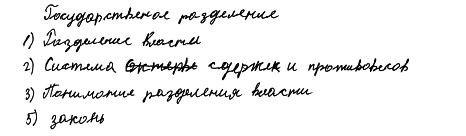 Государственое разделение
1) Разделение власти
2) Система сдержек и противовесов
3) Понимание разделения власти
5) законы